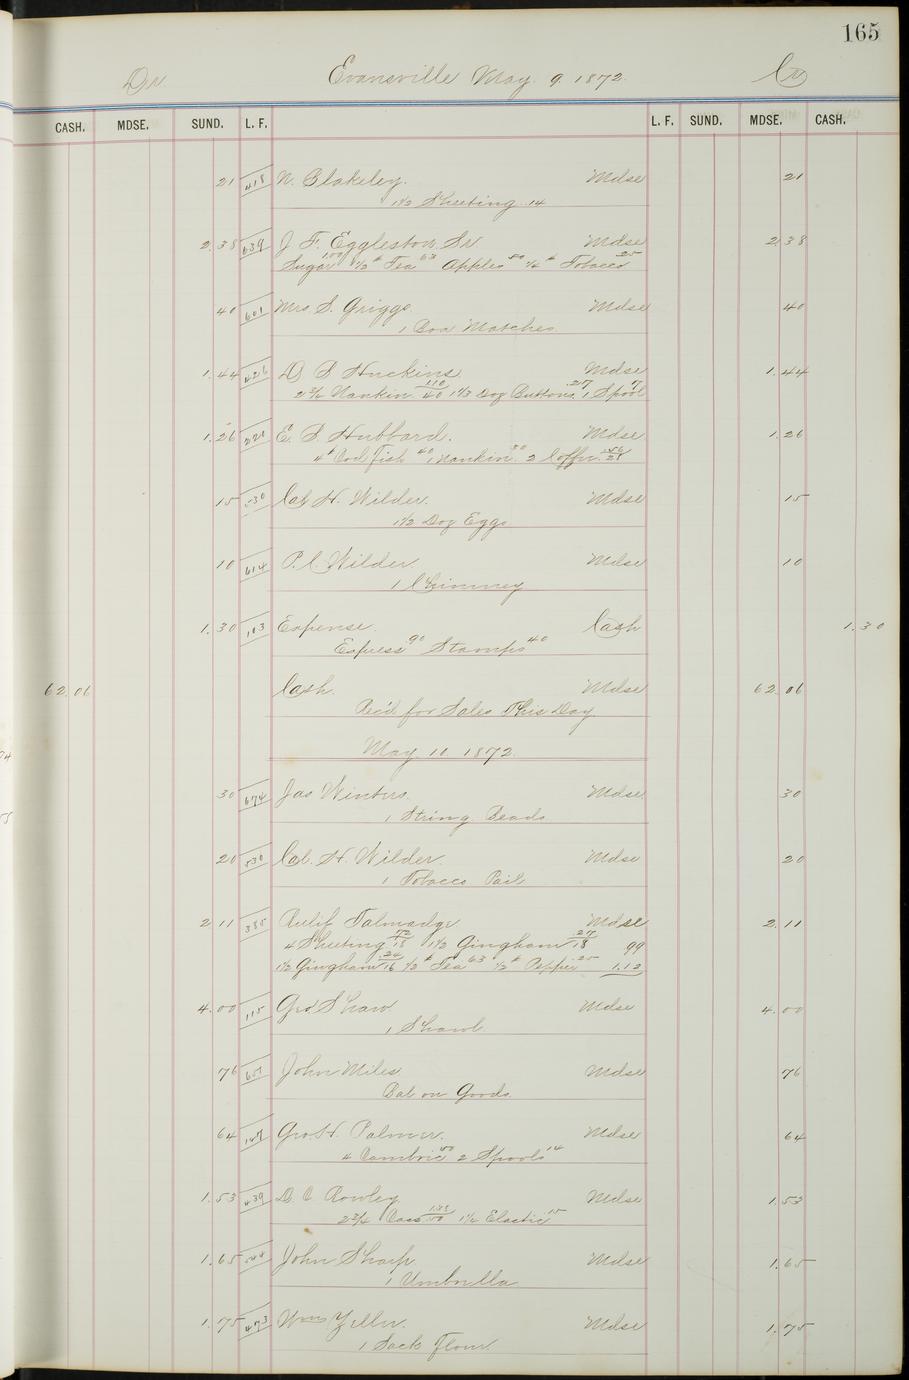 165
Dr Evansville May 9 1872 Cr
CASH. MDSE. SUND. L. F. L. F. SUND. MDSE. CASH.
21 418 N. Blakeley. Mdse 21
1½ Sheeting 14
2.38 639 J F. Eggleston Sr. Mdse 2.38
Sugar 1.00 ½ # Tea 63 Apples 50 ¼ # Tobacco 25
40 601 Mrs. S. Griggs Mdse 40
1 Box Matches
1.44 426 D S Huckins Mdse 1.44
2¾ Nankin 1.10/40 1⅓ Doz Buttons .27 1 Spool 7
1.26 E. S. Hubbard. Mdse 1.26
4 # Cod fish 40 1 Nankin 30 2 Coffee .56/28
15 530 Cal H. Wilder. Mdse 15
1½ Doz Eggs
10 614 P. C. Wilder Mdse 10
1 Chimney
1.30 103 Expense. Cash 1.30
Express 90 Stamps 40
62.06 Cash. Mdse 62.06
Rec'd for Sales This Day.
May 10 1872.
30 674 Jas Winters. Mdse 30
1 String Beads
20 530 Cal. H. Wilder. Mdse 20
1 Tobacco Pail
2 11 385 Rulif Talmadge Mdse 2.11
4 Sheeting 72/18 1½ Gingham .27/18 99
1½ Gingham .24/16 ½ # Tea 63 ½ # Pepper .25 1.12
4.00 115 Geo Shaw Mdse 4.00
1 Shawl
76 John Miles Mdse 76
Bal on Goods
64 147 Geo. H. Palmer. Mdse 64
4 Cambric 50 2 Spools 14
1.53 439 D. C Rowley Mdse 1.53
2¾ Cass 1.38/50 1½ Elastic 15
1.65 John Sharp Mdse 1.65
1 Umbrella
1.75 473 Wm Zeller. Mdse 1.75
1 Sack Flour